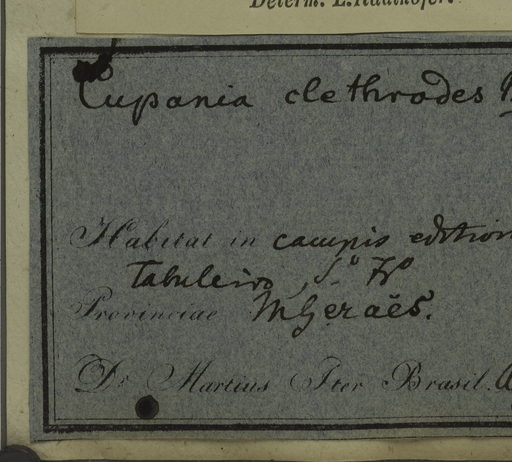 Determ. L. Radlkofer.
Cupania clethrodes
Habitat in campis edition
Tabuleiro,
Provinciae M Geraës.
Dr Martius Iter Brasil.